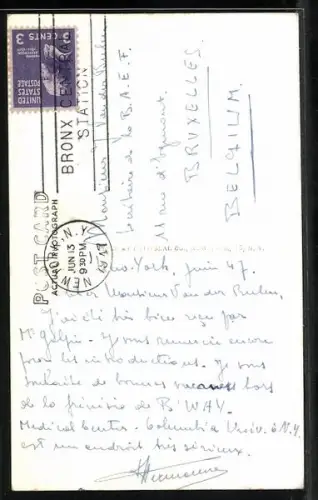 UNITED STATES POSTAGE
3 CENTS 3
BRONX CENTRAL
STATION
NEW YORK, N.Y.
JUN 13
9 30 PM
1947
POST CARD
ACTUAL PHOTOGRAPH
Monsieur J. Van der Belen
de la B.A.E.F.
d'Egmont.
BRUXELLES.
BELGIUM.
New-York, juin 47.
Cher Monsieur Van der Belen,
J'ai été très bien reçu par
Mr Galpin. Je vous remercie encore
pour les introductions. Je vous
souhaite de bonnes vacances hors
de la frénésie de B'WAY.
Medical Center - Columbia Univ. à N.Y.
est un endroit très sérieux.